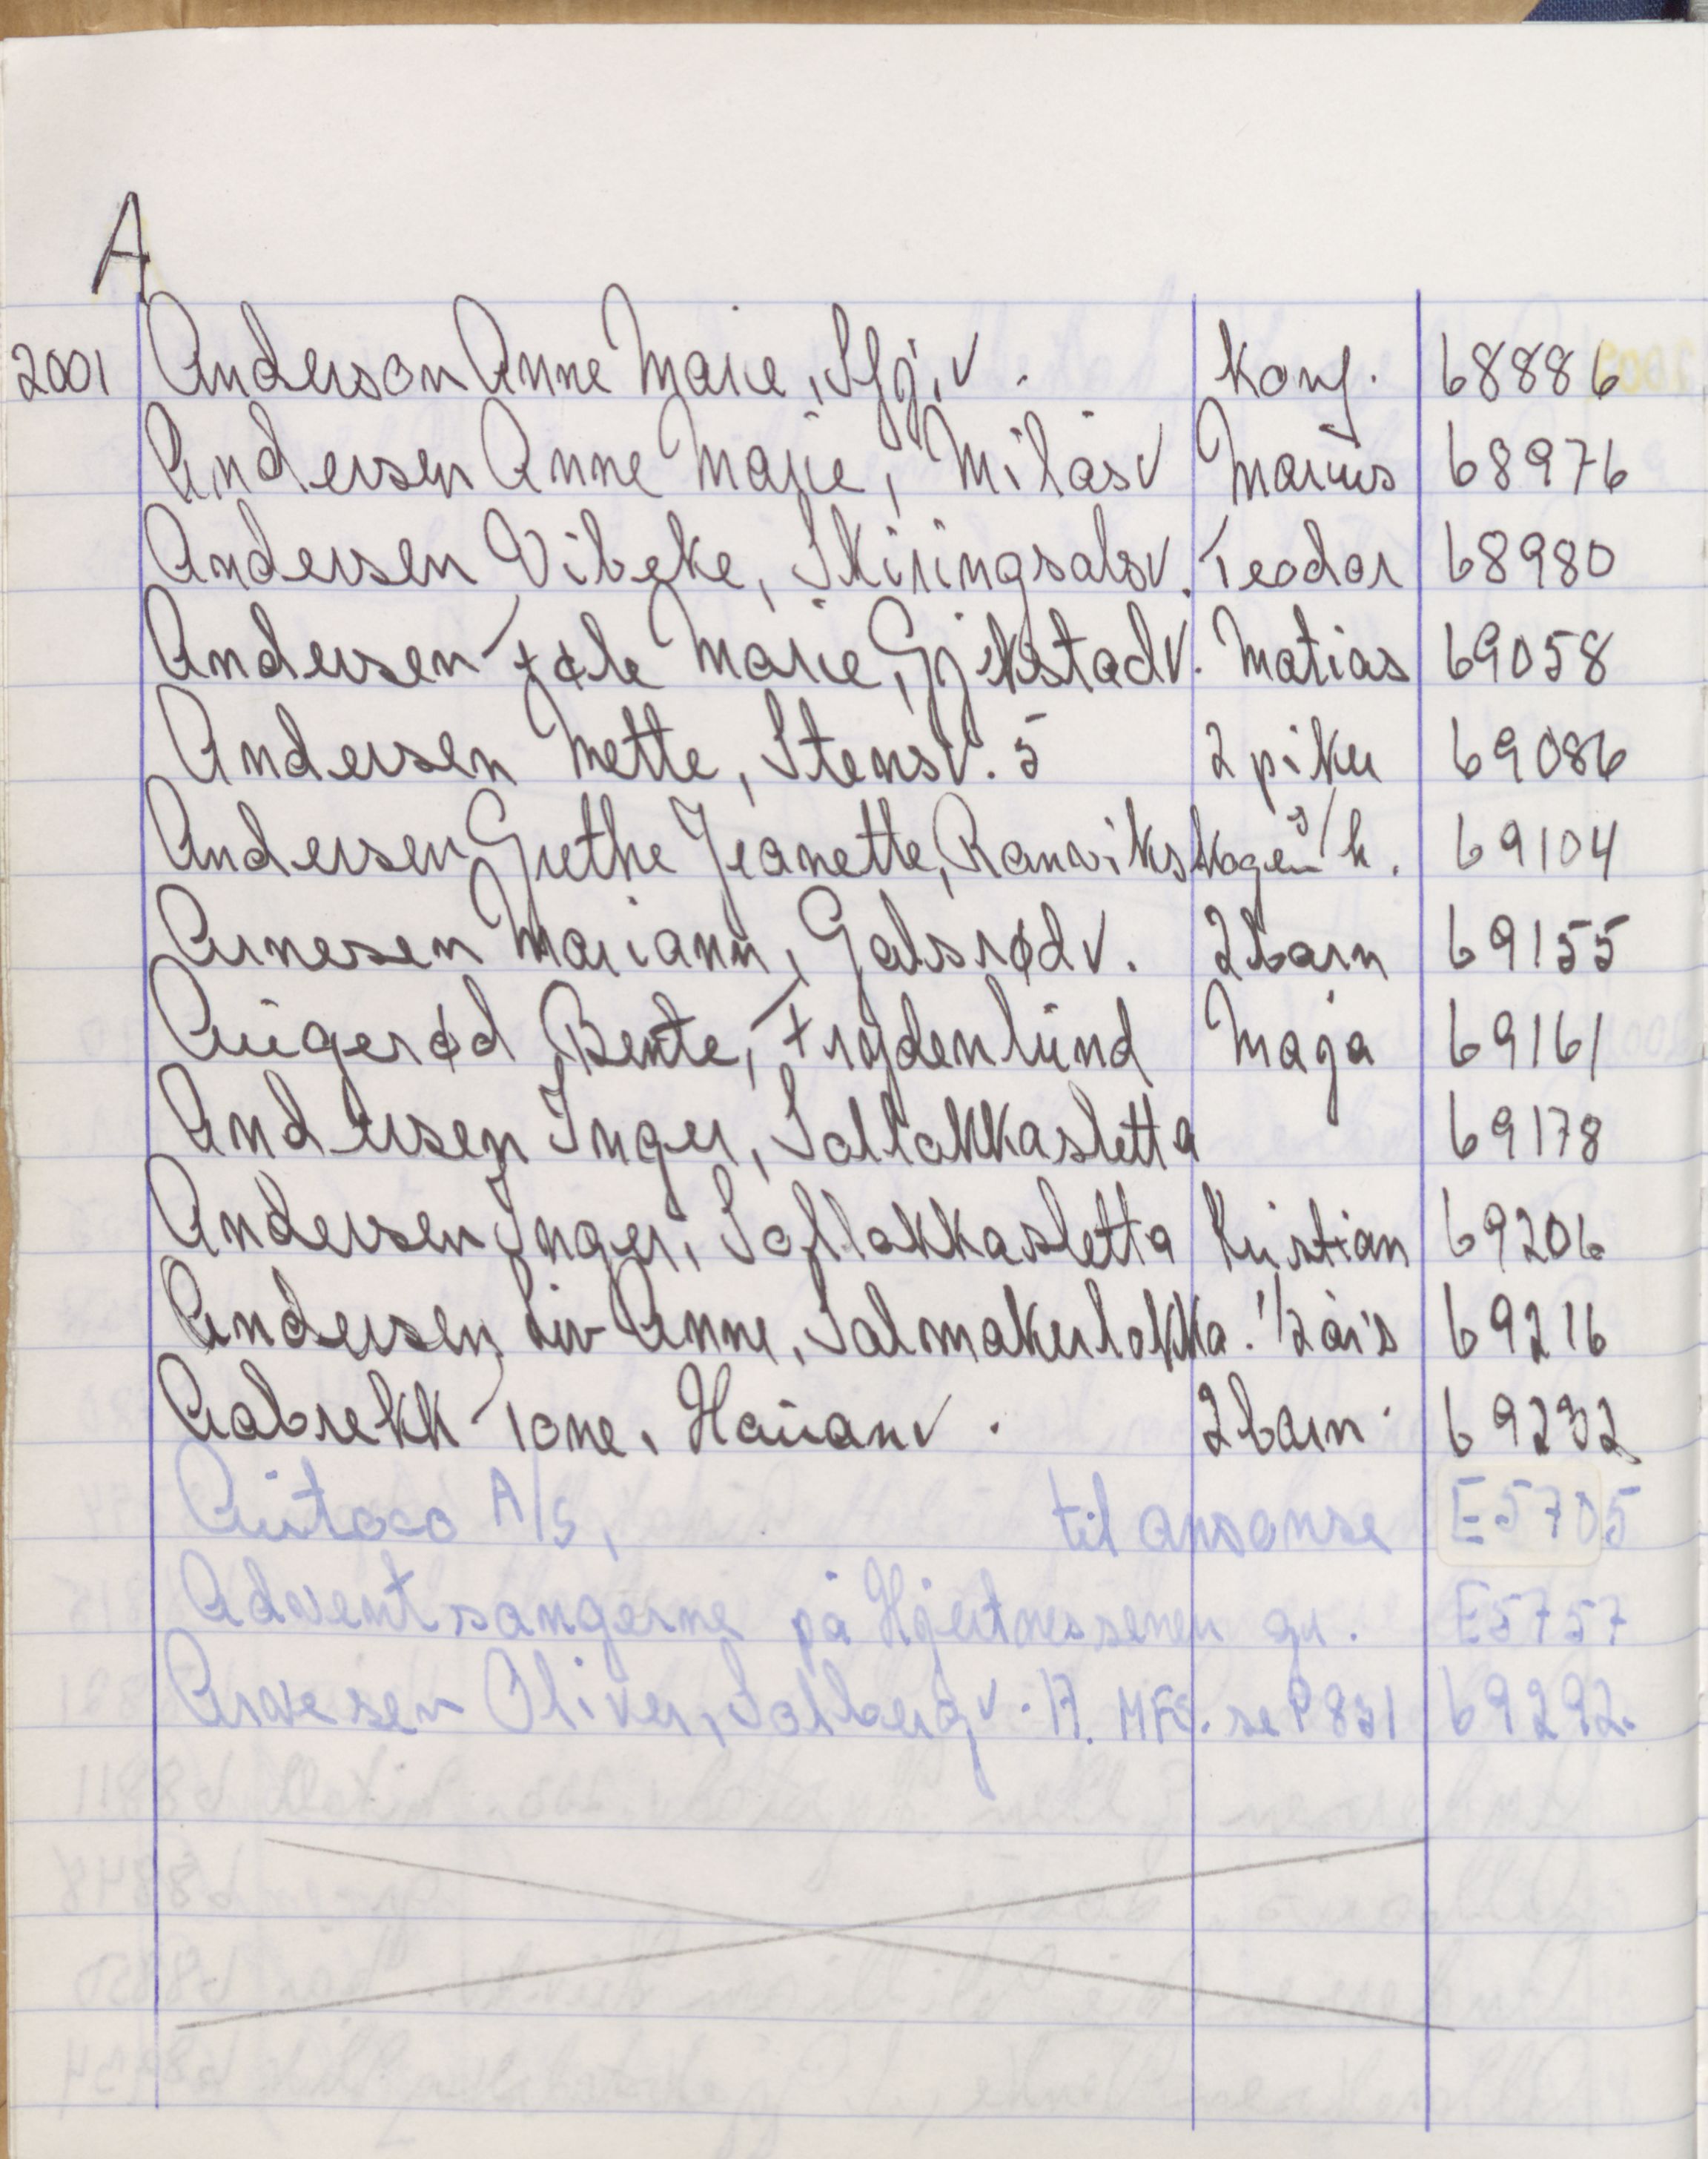 A
2001 Anderson Anne Marie, Sfj.v. Konf. 68886
Andersen Anne Marie, Milåsv Marius 68976
Andersen Vibeke, Skiringsalsv. Teodor 68980
Andersen Marie, Gjekstadv. Matias 69058
Andersen Mette, Stensv. 5 2 piker 69086
Andersen Grethe Jeanette, Ranvikskogen s/h. 69104
Arnesen Mariann, Galsrødv. 2 barn 69155
Augerød Bente, Frydenlund Maja 69161
Andersen Inger, Solløkkasletta 69178
Andersen Inger, Solløkkasletta Kristian 69206
Andersen Liv Anne, Salmakerløkka. 1/2 års 69216
Aabrekk Tone, Hauanv. 2 barn. 69232
A/S, til annonse E5705
Adventsangerne på Hjertnessenen gr. E5757
Arvesen Oliver, Solbergv. 17. MFS. se P831 69292.